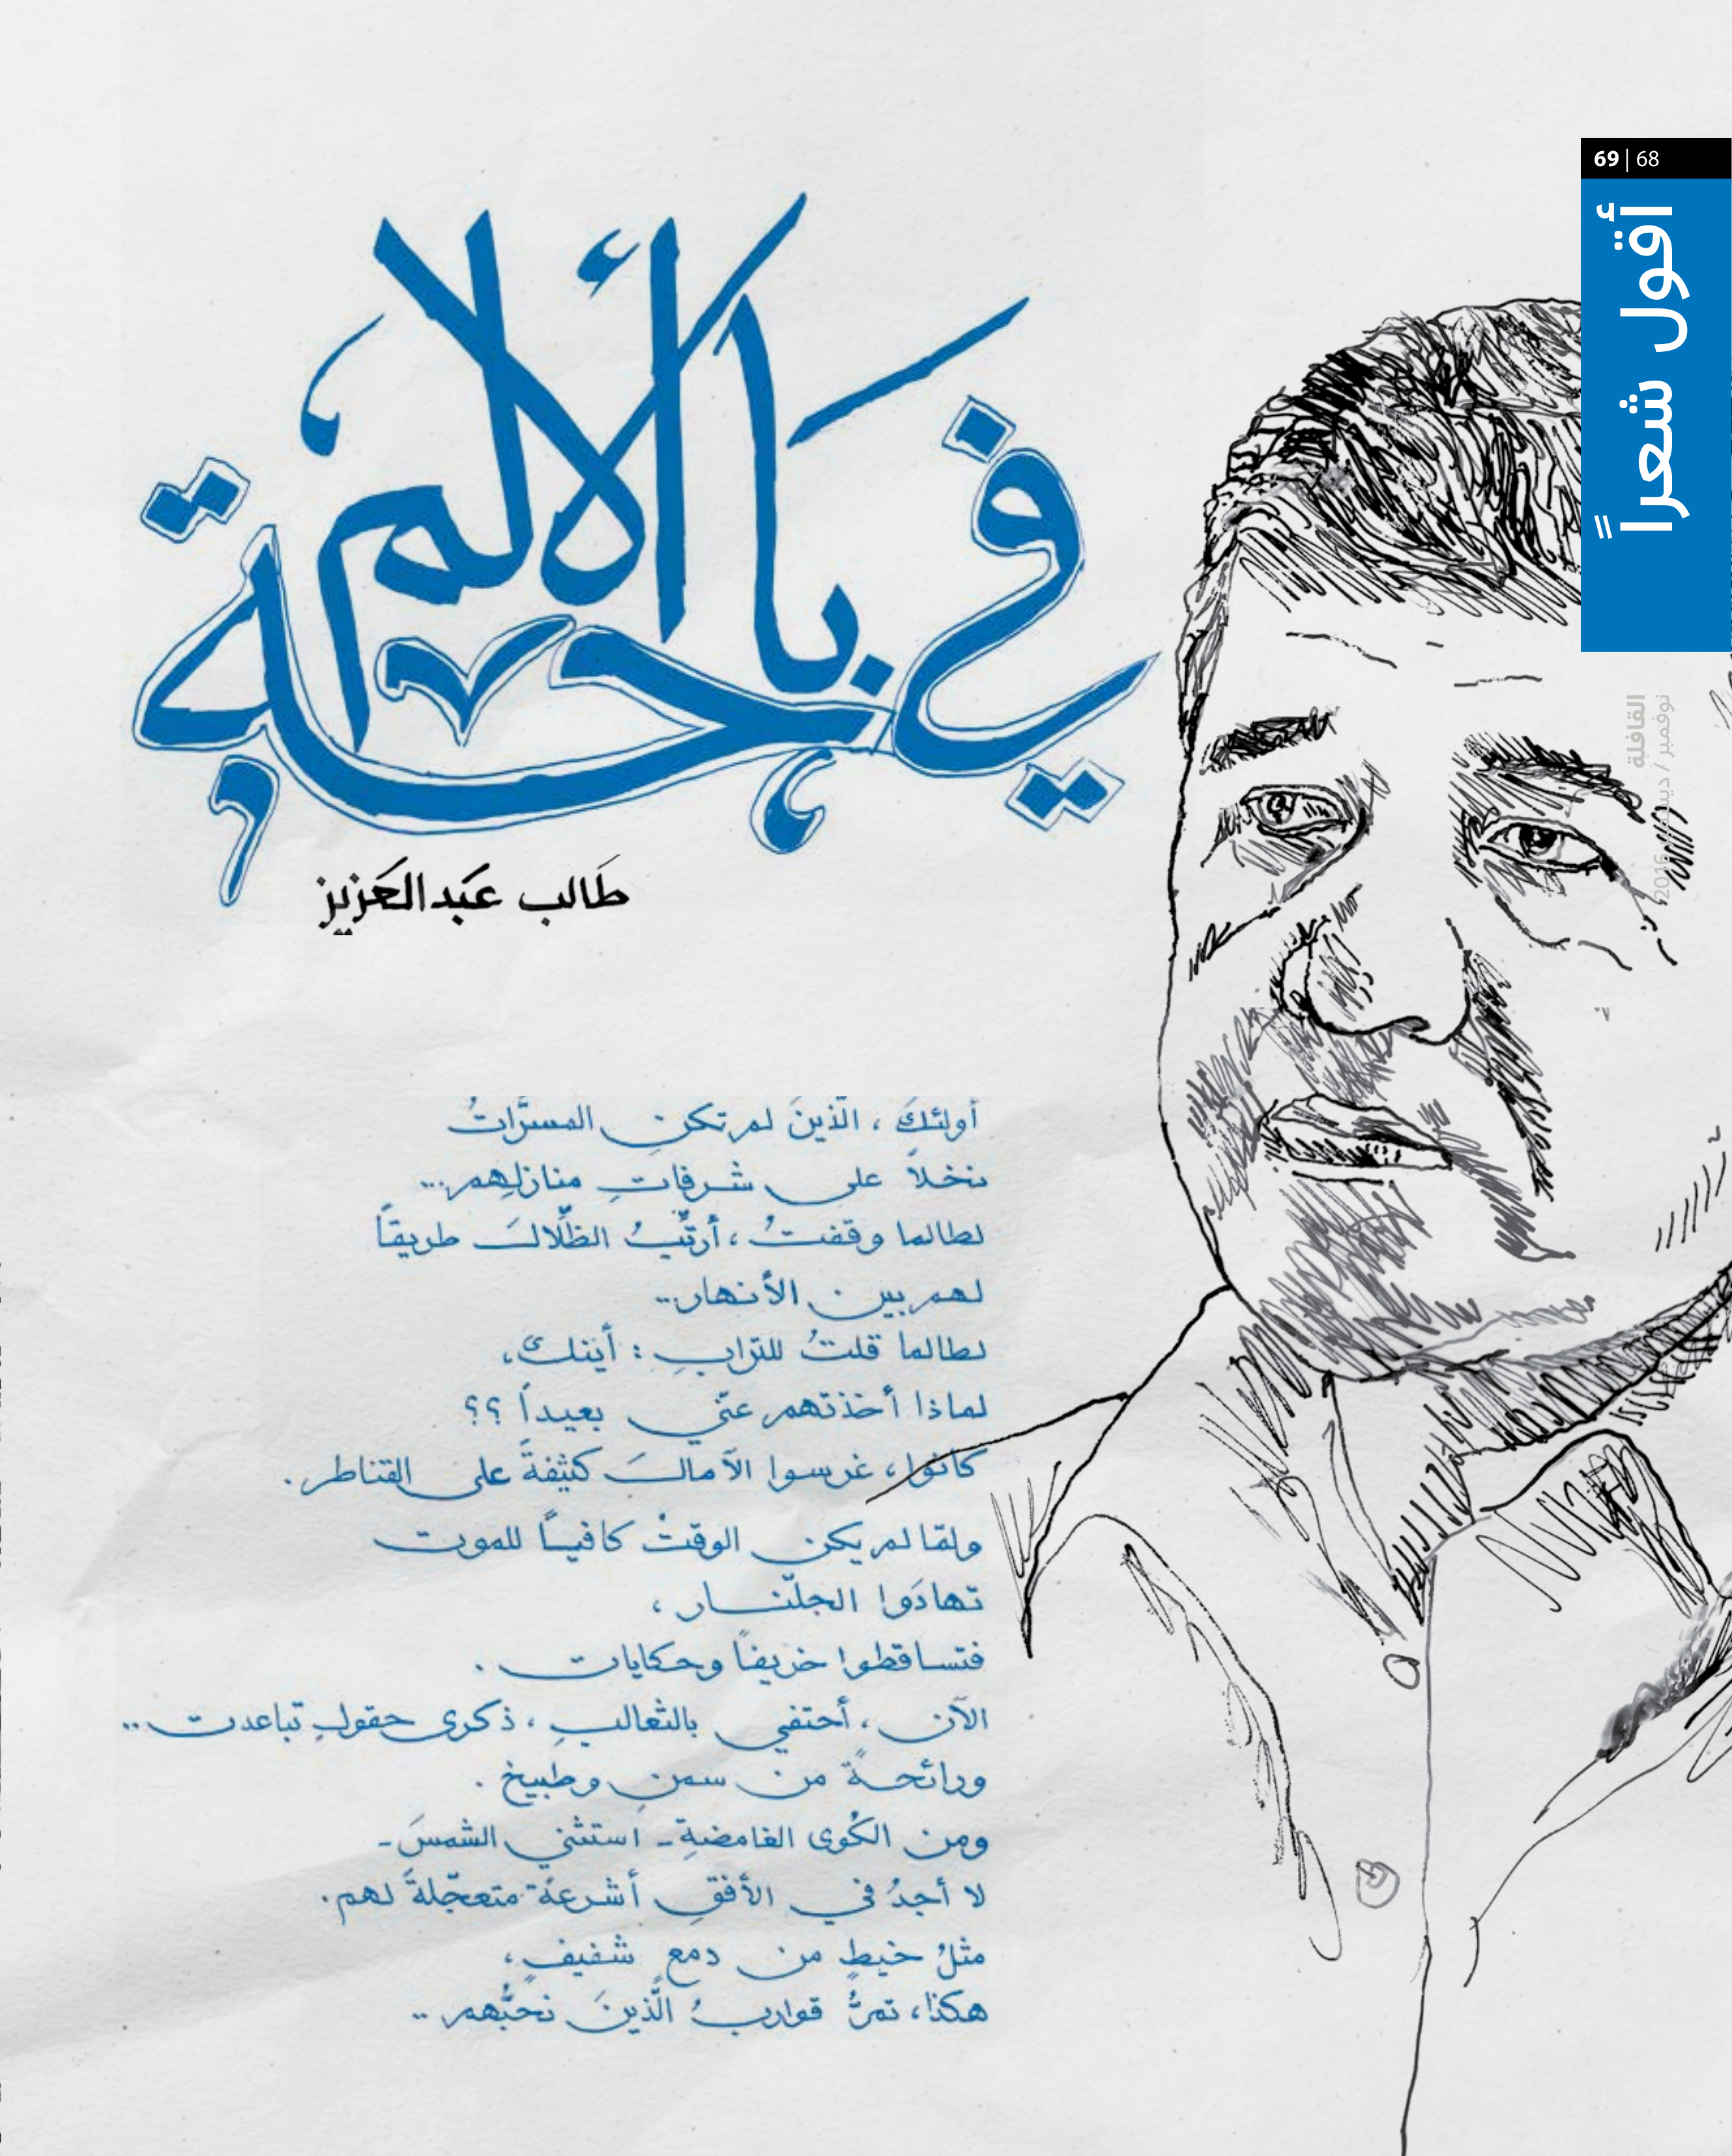 69 | 68
أقول شعراً
القافلة
نوفمبر / ديسمبر 2016
في باحة الألم
طَالب عَبدالعَزيز
أولئكَ ، الّذينَ لم تكنِ المسرّاتُ
نخلاً على شرفاتِ منازلِهم...
لطالما وقفتُ ، أرتّبُ الظّلالَ طريقاً
لهم بين الأنهار..
لطالما قلتُ للترابِ : أيّنك،
لماذا أخذتهم عنّي بعيداً ؟؟
كانوا ، غرسوا الآمالَ كثيفةً على القناطر .
ولمّا لم يكن الوقتْ كافيـاً للموت
تهادَوا الجلّنـار ،
فتساقطوا خريفاً وحكايات .
الآن ، أحتفي بالثعالبِ ، ذكرى حقولٍ تباعدت ..
ورائحـةً من سمنٍ وطبيخ .
ومن الكُوى الغامضةِ - استثني الشمسَ -
لا أجدُ في الأفقِ أشرعةً متعجّلةً لهم .
مثلُ خيطٍ من دمع شفيفٍ ،
هكذا ، تمرُّ قواربُ الَّذينَ نحبُّهم ..